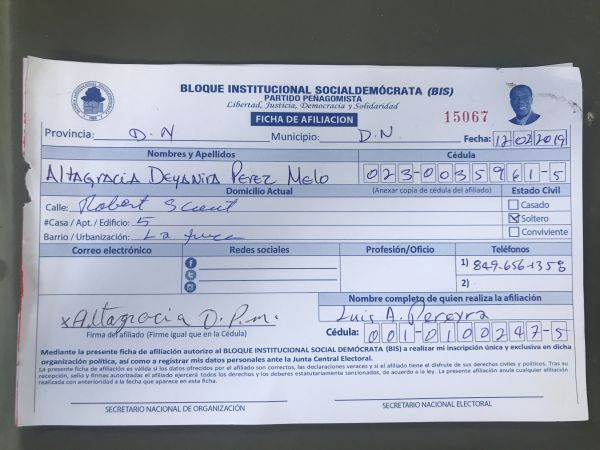 BLOQUE INSTITUCIONAL SOCIALDEMÓCRATA (BIS)
PARTIDO PEÑAGOMISTA
Libertad, Justicia, Democracia y Solidaridad
FICHA DE AFILIACION
15067
Provincia: D.N Municipio: D.N. Fecha: 12/02/2019
Nombres y Apellidos Cédula
Altagracia Deyanira Perez Melo 023-0035961-5
Domicilio Actual (Anexar copia de cédula del afiliado) Estado Civil
Calle: Robert Scout Casado
#Casa / Apt. / Edificio: 5 Soltero
Barrio / Urbanización: La Conviviente
Correo electrónico Redes sociales Profesión/Oficio Teléfonos
1) 849-656-1358
2)
Nombre completo de quien realiza la afiliación
x Altagracia D.P.m. Luis A. Pereyra
Firma del afiliado (Firme igual que en la Cédula) Cédula: 001-0100247-5
Mediante la presente ficha de afiliación autorizo al BLOQUE INSTITUCIONAL SOCIAL DEMÓCRATA (BIS) a realizar mi inscripción única y exclusiva en dicha
organización política, así como a registrar mis datos personales ante la Junta Central Electoral.
La presente ficha de afiliación es válida si los datos ofrecidos por el afiliado son correctos, las declaraciones veraces y si el afiliado tiene el disfrute de sus derechos civiles y políticos. Tras su
recepción, sello y firmas autorizadas el afiliado ejercerá todos los derechos y los deberes estatutariamente sancionados, de acuerdo a la ley. La presente afiliación anula cualquier afiliación
realizada con anterioridad a la fecha que aparece en esta ficha.
SECRETARIO NACIONAL DE ORGANIZACIÓN SECRETARIO NACIONAL ELECTORAL